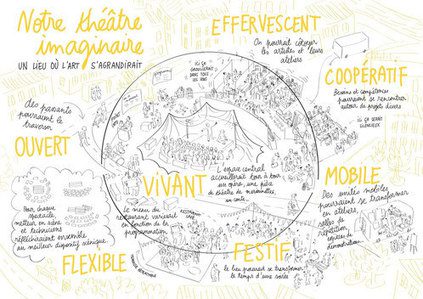 Notre théâtre
imaginaire
UN LIEU OÙ L'ART S'AGRANDIRAIT
EFFERVESCENT
On pourrait côtoyer
les artistes et leurs
ateliers
COOPÉRATIF
Besoins et compétences
pourraient se rencontrer
autour de projets divers
ICI ÇA
DANS TOUS
LES
des passants
pourraient le
traverser
OUVERT
ICI ÇA SERAIT
SILENCIEUX
VIVANT
L'espace central
accueillerait tour à tour
un opéra, une pièce
de théâtre de marionnettes,
un conte...
MOBILE
Des unités mobiles
pourraient se transformer
en ateliers,
salles de
répétition,
espaces de
démonstration...
le menu du
restaurant varierait
en fonction de la
programmation
Pour chaque
spectacle,
metteur en scène
et techniciens
réfléchiraient ensemble
au meilleur dispositif scénique.
FLEXIBLE
FESTIF
le lieu pourrait se transformer
le temps d'une soirée